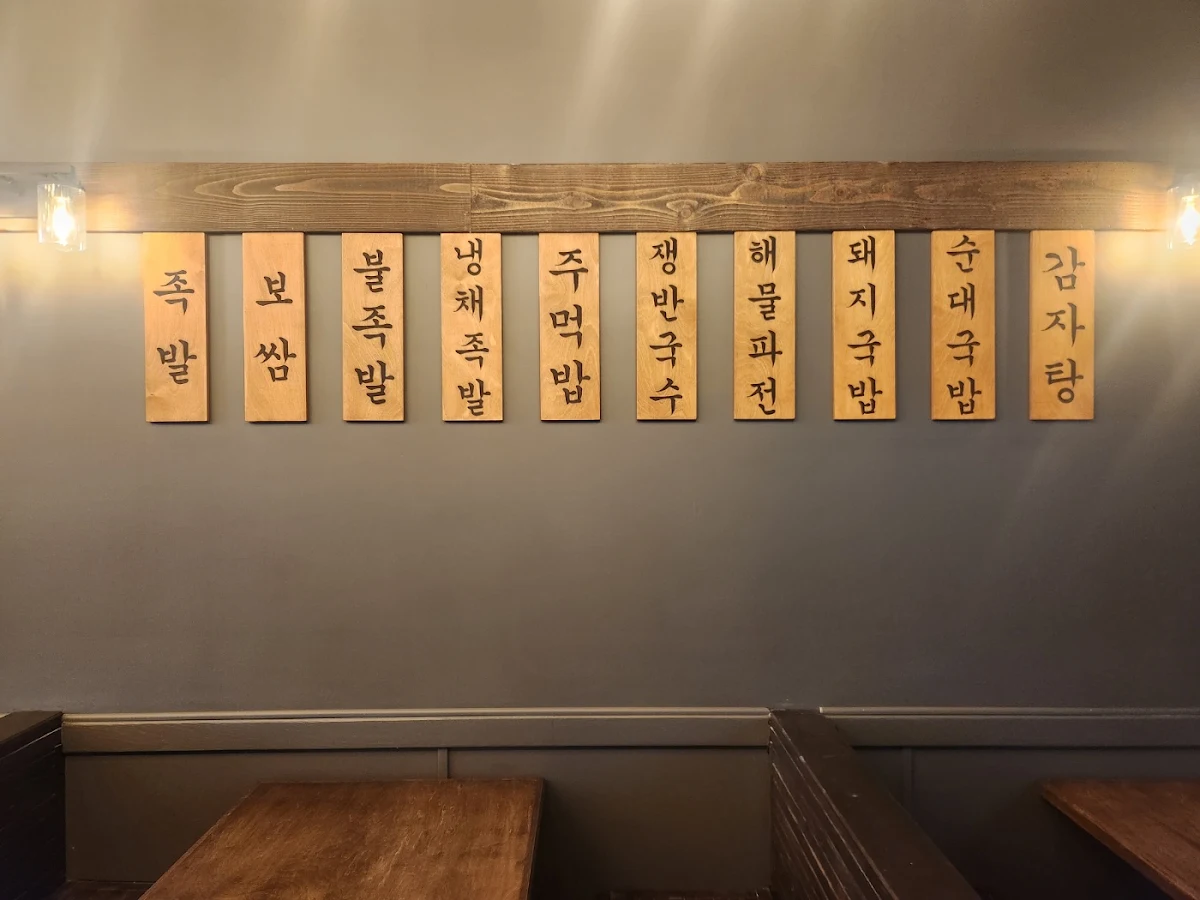 족발
보쌈
불족발
냉채족발
주먹밥
쟁반국수
해물파전
돼지국밥
순대국밥
감자탕